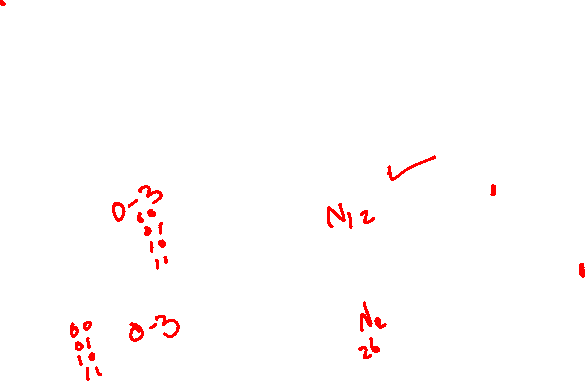 0-3
00
01
10
11
N12
00
01
10
11
0-3
N2
26